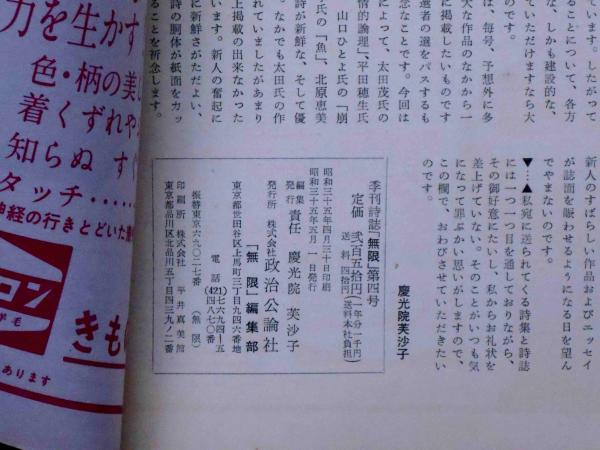 新人のすばらしい作品およびエッセイ
が誌面を賑わせるようになる日を望ん
でやまないのです。
▼……▲私宛に送られてくる詩集と詩誌
には一つ一つ目を通しておりながら、
その御好意にたいし、私からお礼状を
差上げていない。そのことがいつも気
になって罪ぶかい思いがしますので、
この欄で、おわびさせていただきたい
のです。
慶光院芙沙子
季刊詩誌「無限」第四号
定価 弐百五拾円(一年分一千円)
送料 四拾円(送料本社負担)
昭和三十五年四月三十日印刷
昭和三十五年五月一日発行
編集
発行
責任 慶光院 芙沙子
発行所 株式会社 政治公論社
「無限」編集部
東京都世田谷区上馬町三丁目九四六番地
電話(421)七六九四―五
(四八七〇番)
振替東京六九〇二七番(無限)
印刷所 株式会社 平井真美館
東京都品川区北品川五丁目四三九ノ二番
ています。したがって
ることについて、各方
な、しかも建設的な、
ていただけますなら大
のです。
は、毎号、予想外に多
大な作品のなかから一
に掲載したいものです
選者の選をパスするも
念なことです。今回は
によって、太田茂氏の
情的論理」、平田穂生氏
山口ひとよ氏の「崩
氏の「魚」、北原恵美
詩が新鮮な、そして優
れていましたがあまり
。なかでも太田氏の作
上掲載の出来なかった
に新鮮さがただよい、
います。新人の奮起に
詩の胴体が紙面をカッ
ることを祈念します。
力を生かす
色・柄の美し
着くずれや
知らぬ す
タッチ……
神経の行きとどいた
コン
羊毛
きも
あります